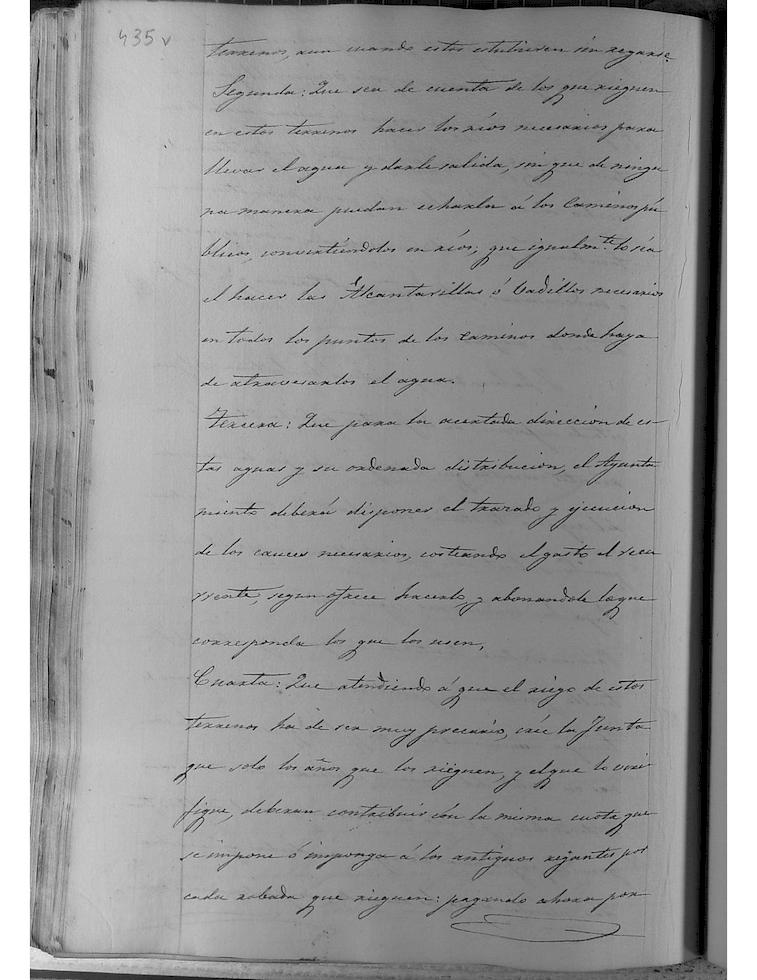 435 v
terrenos, aun cuando estos estubiesen sin regarse.
Segunda: Que sea de cuenta de los que rieguen
en estos terrenos hacer los ríos necesarios para
llevar el agua y darle salida, sin que de ningu
na manera puedan echarla á los Caminos pú
blicos, convirtiéndolos en ríos; que igualmte. lo séa
el hacer las Alcantarillas ó Badillos necesarios
en todos los puntos de los caminos donde haya
de atravesarlos el agua.
Tercera: Que para la acertada dirección de es-
tas aguas y su ordenada distribucion, el Ayunta
miento deberá disponer el trazado y ejecucion
de los cauces necesarios, costeando el gasto el recu
rrente, segun ofrece hacerlo, y abonandole lo que
corresponda los que los usen,
Cuarta: Que atendiendo á que el riego de estos
terrenos ha de ser muy precario, crée la Junta
que solo los años que los riéguen, y el que lo veri
fique, deberan contribuir con la misma cuota que
se impone ó imponga á los antiguos regantes por
cada robada que rieguen: pagando ahora por